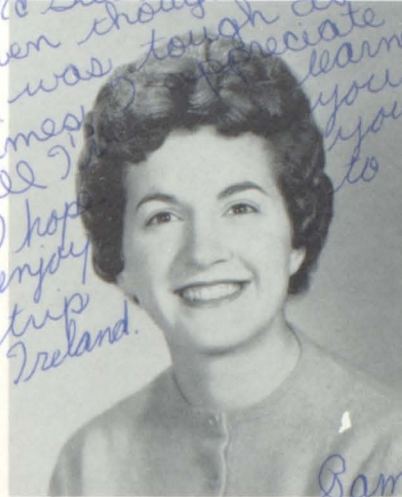 en though
was tough at
mes I appreciate
ll I've learn
you
I hope you
enjoy
to
trip
Ireland.
Pam